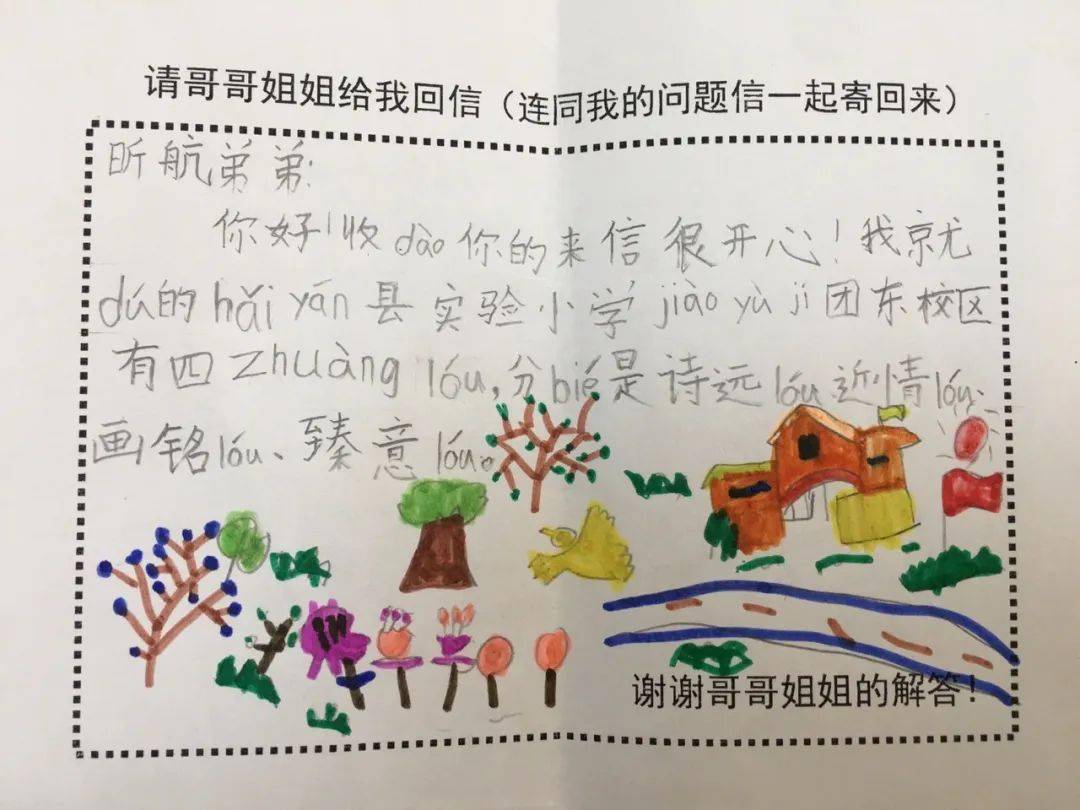 请哥哥姐姐给我回信（连同我的问题信一起寄回来）
昕航弟弟：
你好！收dào你的来信很开心！我就
dú的hǎi yán县实验小学jiào yù jí团东校区
有四zhuàng lóu，分bié是诗远lóu、近情lóu、
画铭lóu、臻意lóu。
谢谢哥哥姐姐的解答！